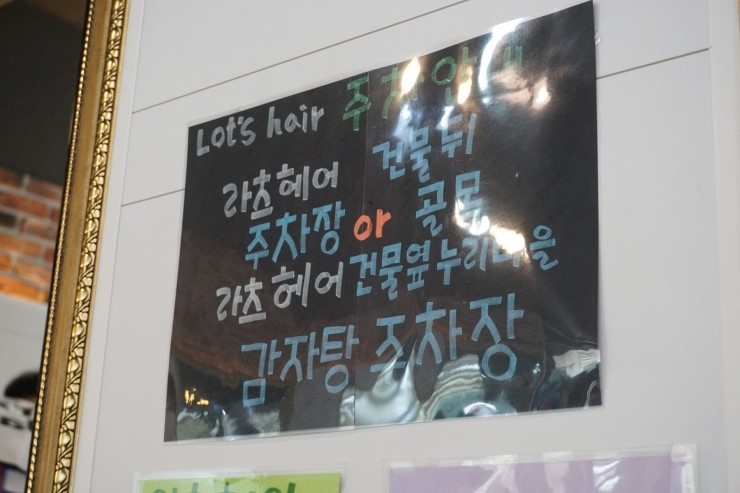 Lot's hair 주차 안내
라츠헤어 건물뒤
주차장 or 골목
라츠헤어 건물옆 누리마을
감자탕 주차장